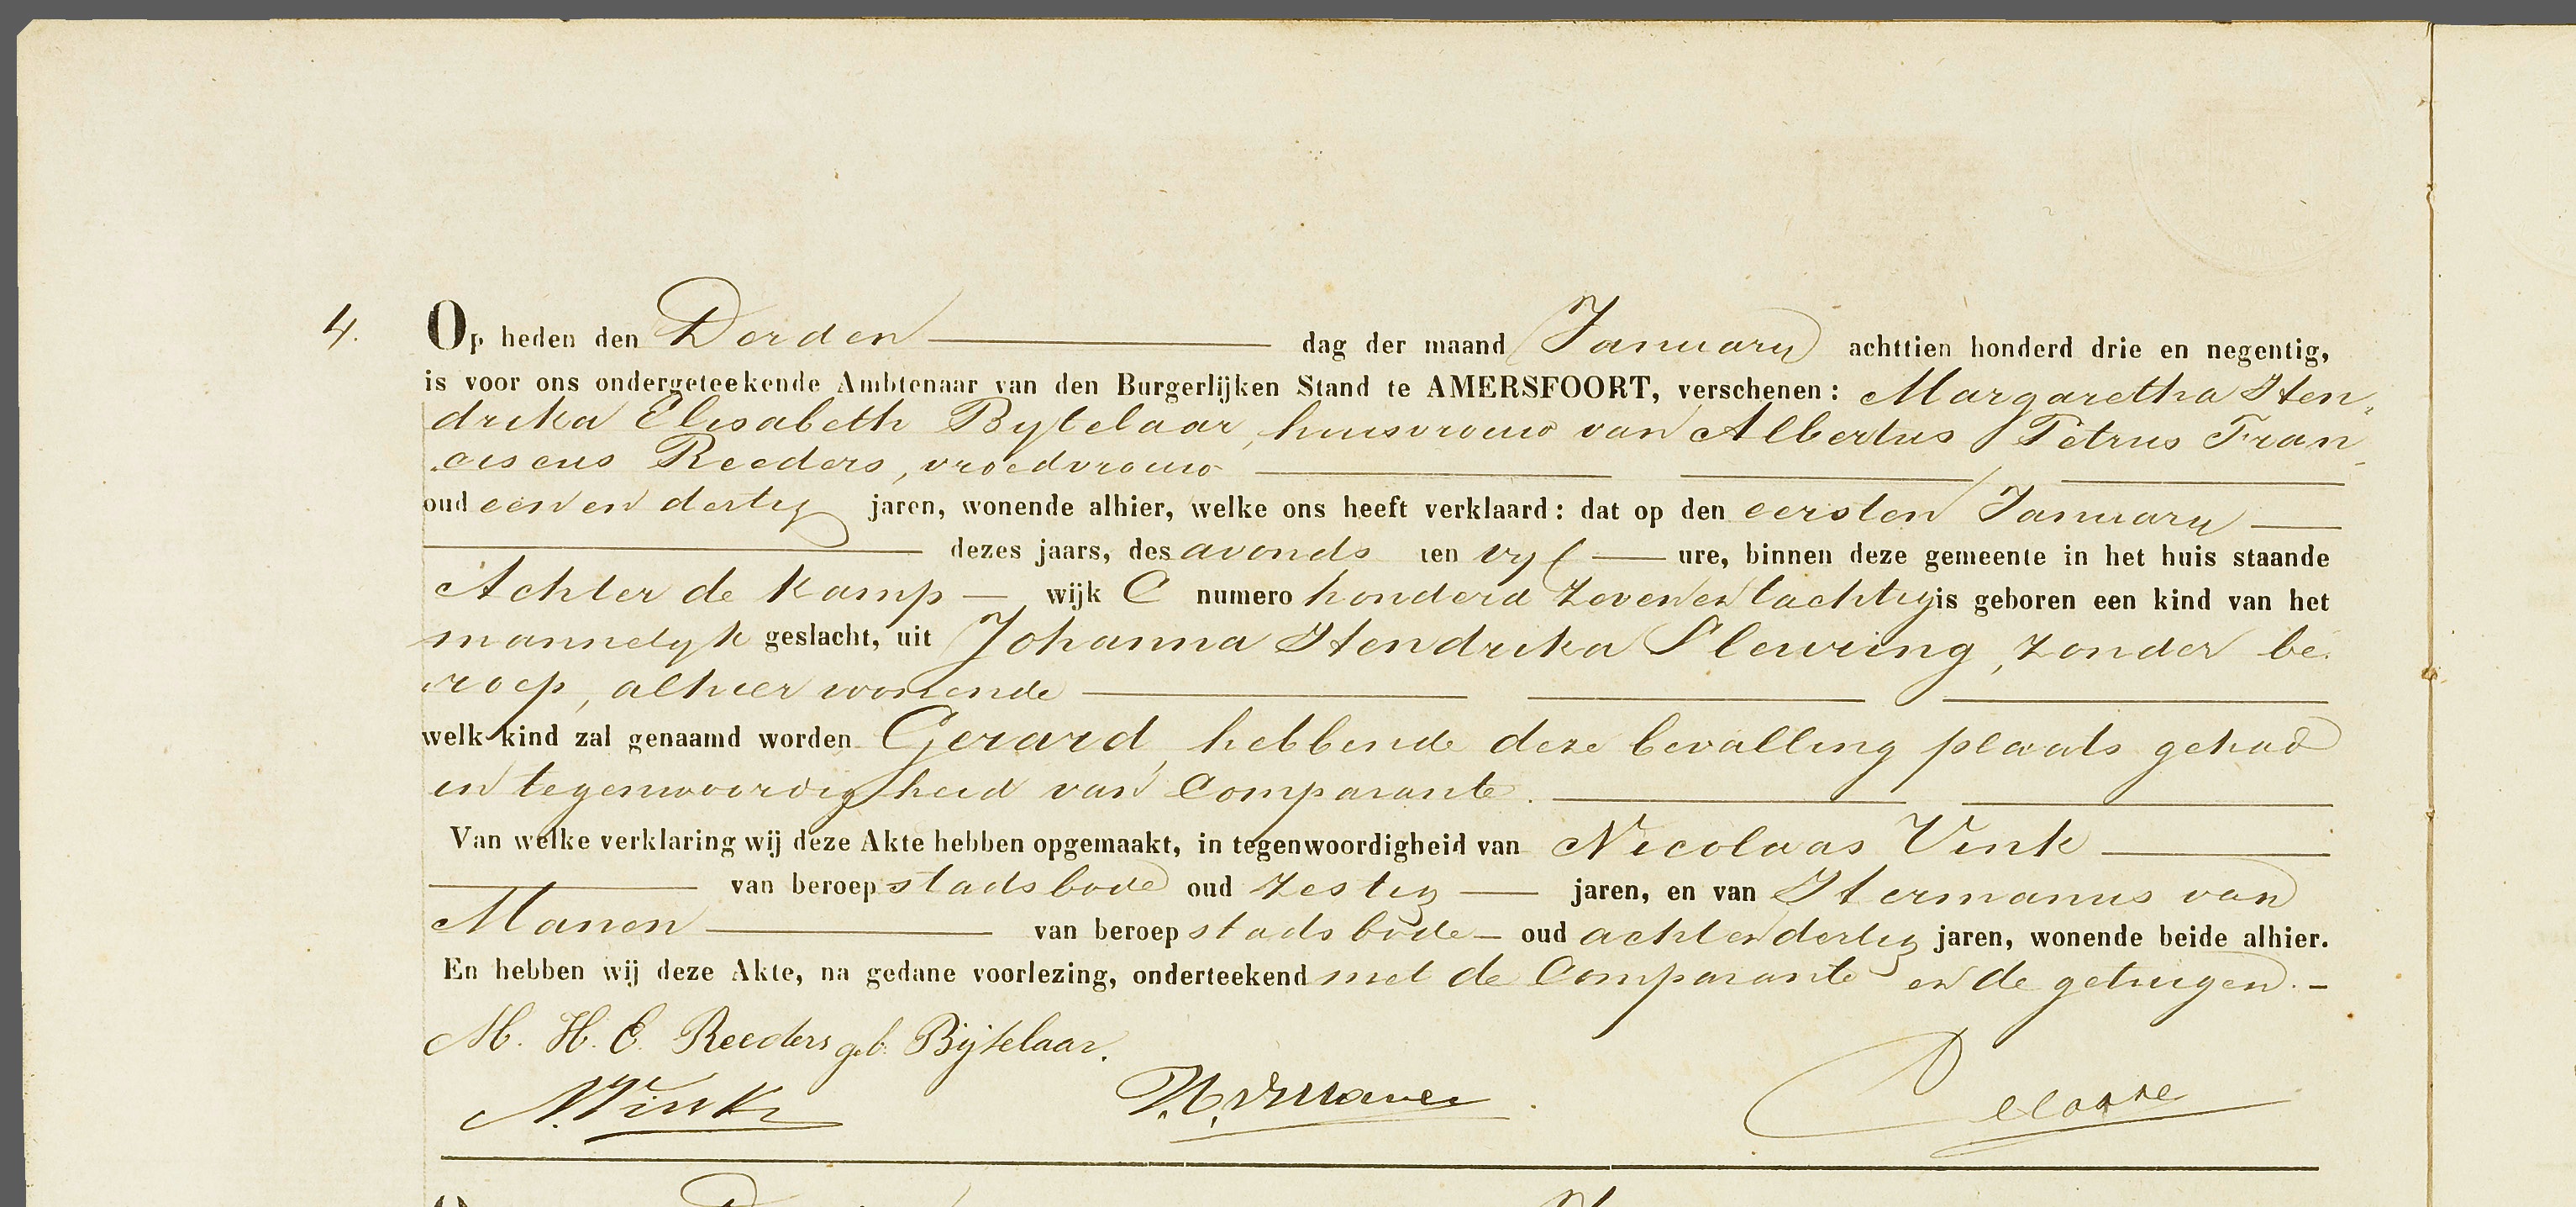 4. Op heden den Derden dag der maand January achttien honderd drie en negentig,
is voor ons ondergeteekende Ambtenaar van den Burgerlijken Stand te AMERSFOORT, verschenen: Margaretha Hen-
drika Elisabeth Bytelaar, huisvrouw van Albertus Petrus Fran-
ciscus Reeders, vroedvrouw
oud een en dertig jaren, wonende alhier, welke ons heeft verklaard: dat op den eersten January
dezes jaars, des avonds ten vyf ure, binnen deze gemeente in het huis staande
Achter de Kamp wijk C numero honderd zeven en tachtig is geboren een kind van het
mannelyk geslacht, uit Johanna Hendrika Sleuring, zonder be-
roep, alhier wonende
welk kind zal genaamd worden Gerard, hebbende deze bevalling plaats gehad
in tegenwoordigheid van Comparante.
Van welke verklaring wij deze Akte hebben opgemaakt, in tegenwoordigheid van Nicolaas Vink
van beroep stadsbode oud zestig jaren, en van Hermanus van
Manen van beroep stadsbode oud acht en dertig jaren, wonende beide alhier.
En hebben wij deze Akte, na gedane voorlezing, onderteekend met de Comparante en de getuigen.
M. H. E. Reeders geb. Bijtelaar.
N. Vink H. v Manen